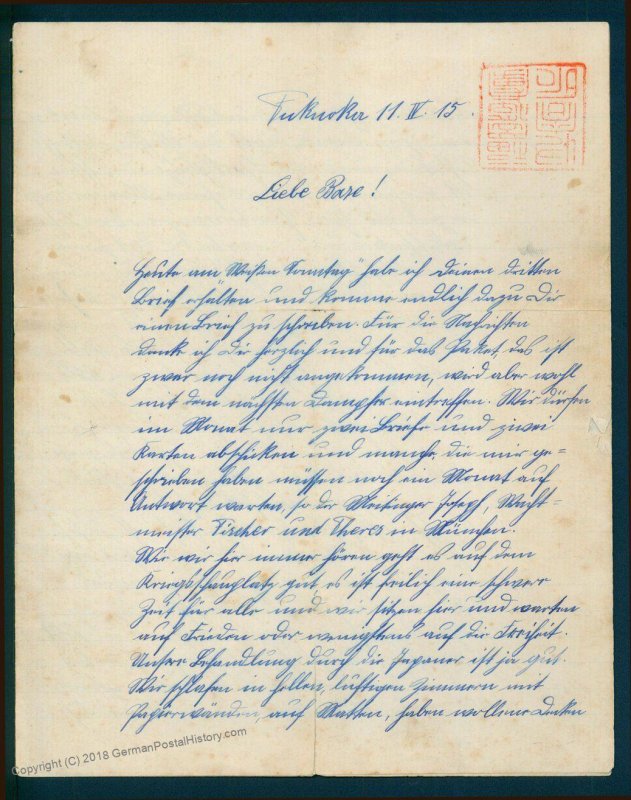 Fukuoka 11. IV. 15.
Liebe Base!
Heute am Weißen Sonntag habe ich Deinen dritten
Brief erhalten und komme endlich dazu Dir
einen Brief zu schreiben. Für die Nachrichten
danke ich Dir herzlich und für das Paket, das ist
zwar noch nicht angekommen, wird aber wohl
mit dem nächsten Dampfer eintreffen. Wir dürfen
im Monat nur zwei Briefe und zwei
Karten abschicken und manche die mir ge=
schrieben haben müssen noch ein Monat auf
Antwort warten, so der Joseph, Wacht=
meister Fischer und Theres in München.
Wie wir hier immer hören geht es auf dem
Kriegsschauplatz gut, es ist freilich eine schwere
Zeit für alle und wir sitzen hier und warten
auf Frieden oder wenigstens auf die Freiheit.
Unsere Behandlung durch die Japaner ist ja gut.
Wir schlafen in hellen, luftigen Zimmern mit
Papierwänden, auf Matten, haben wollene Decken
Copyright (C) 2018 GermanPostalHistory.com